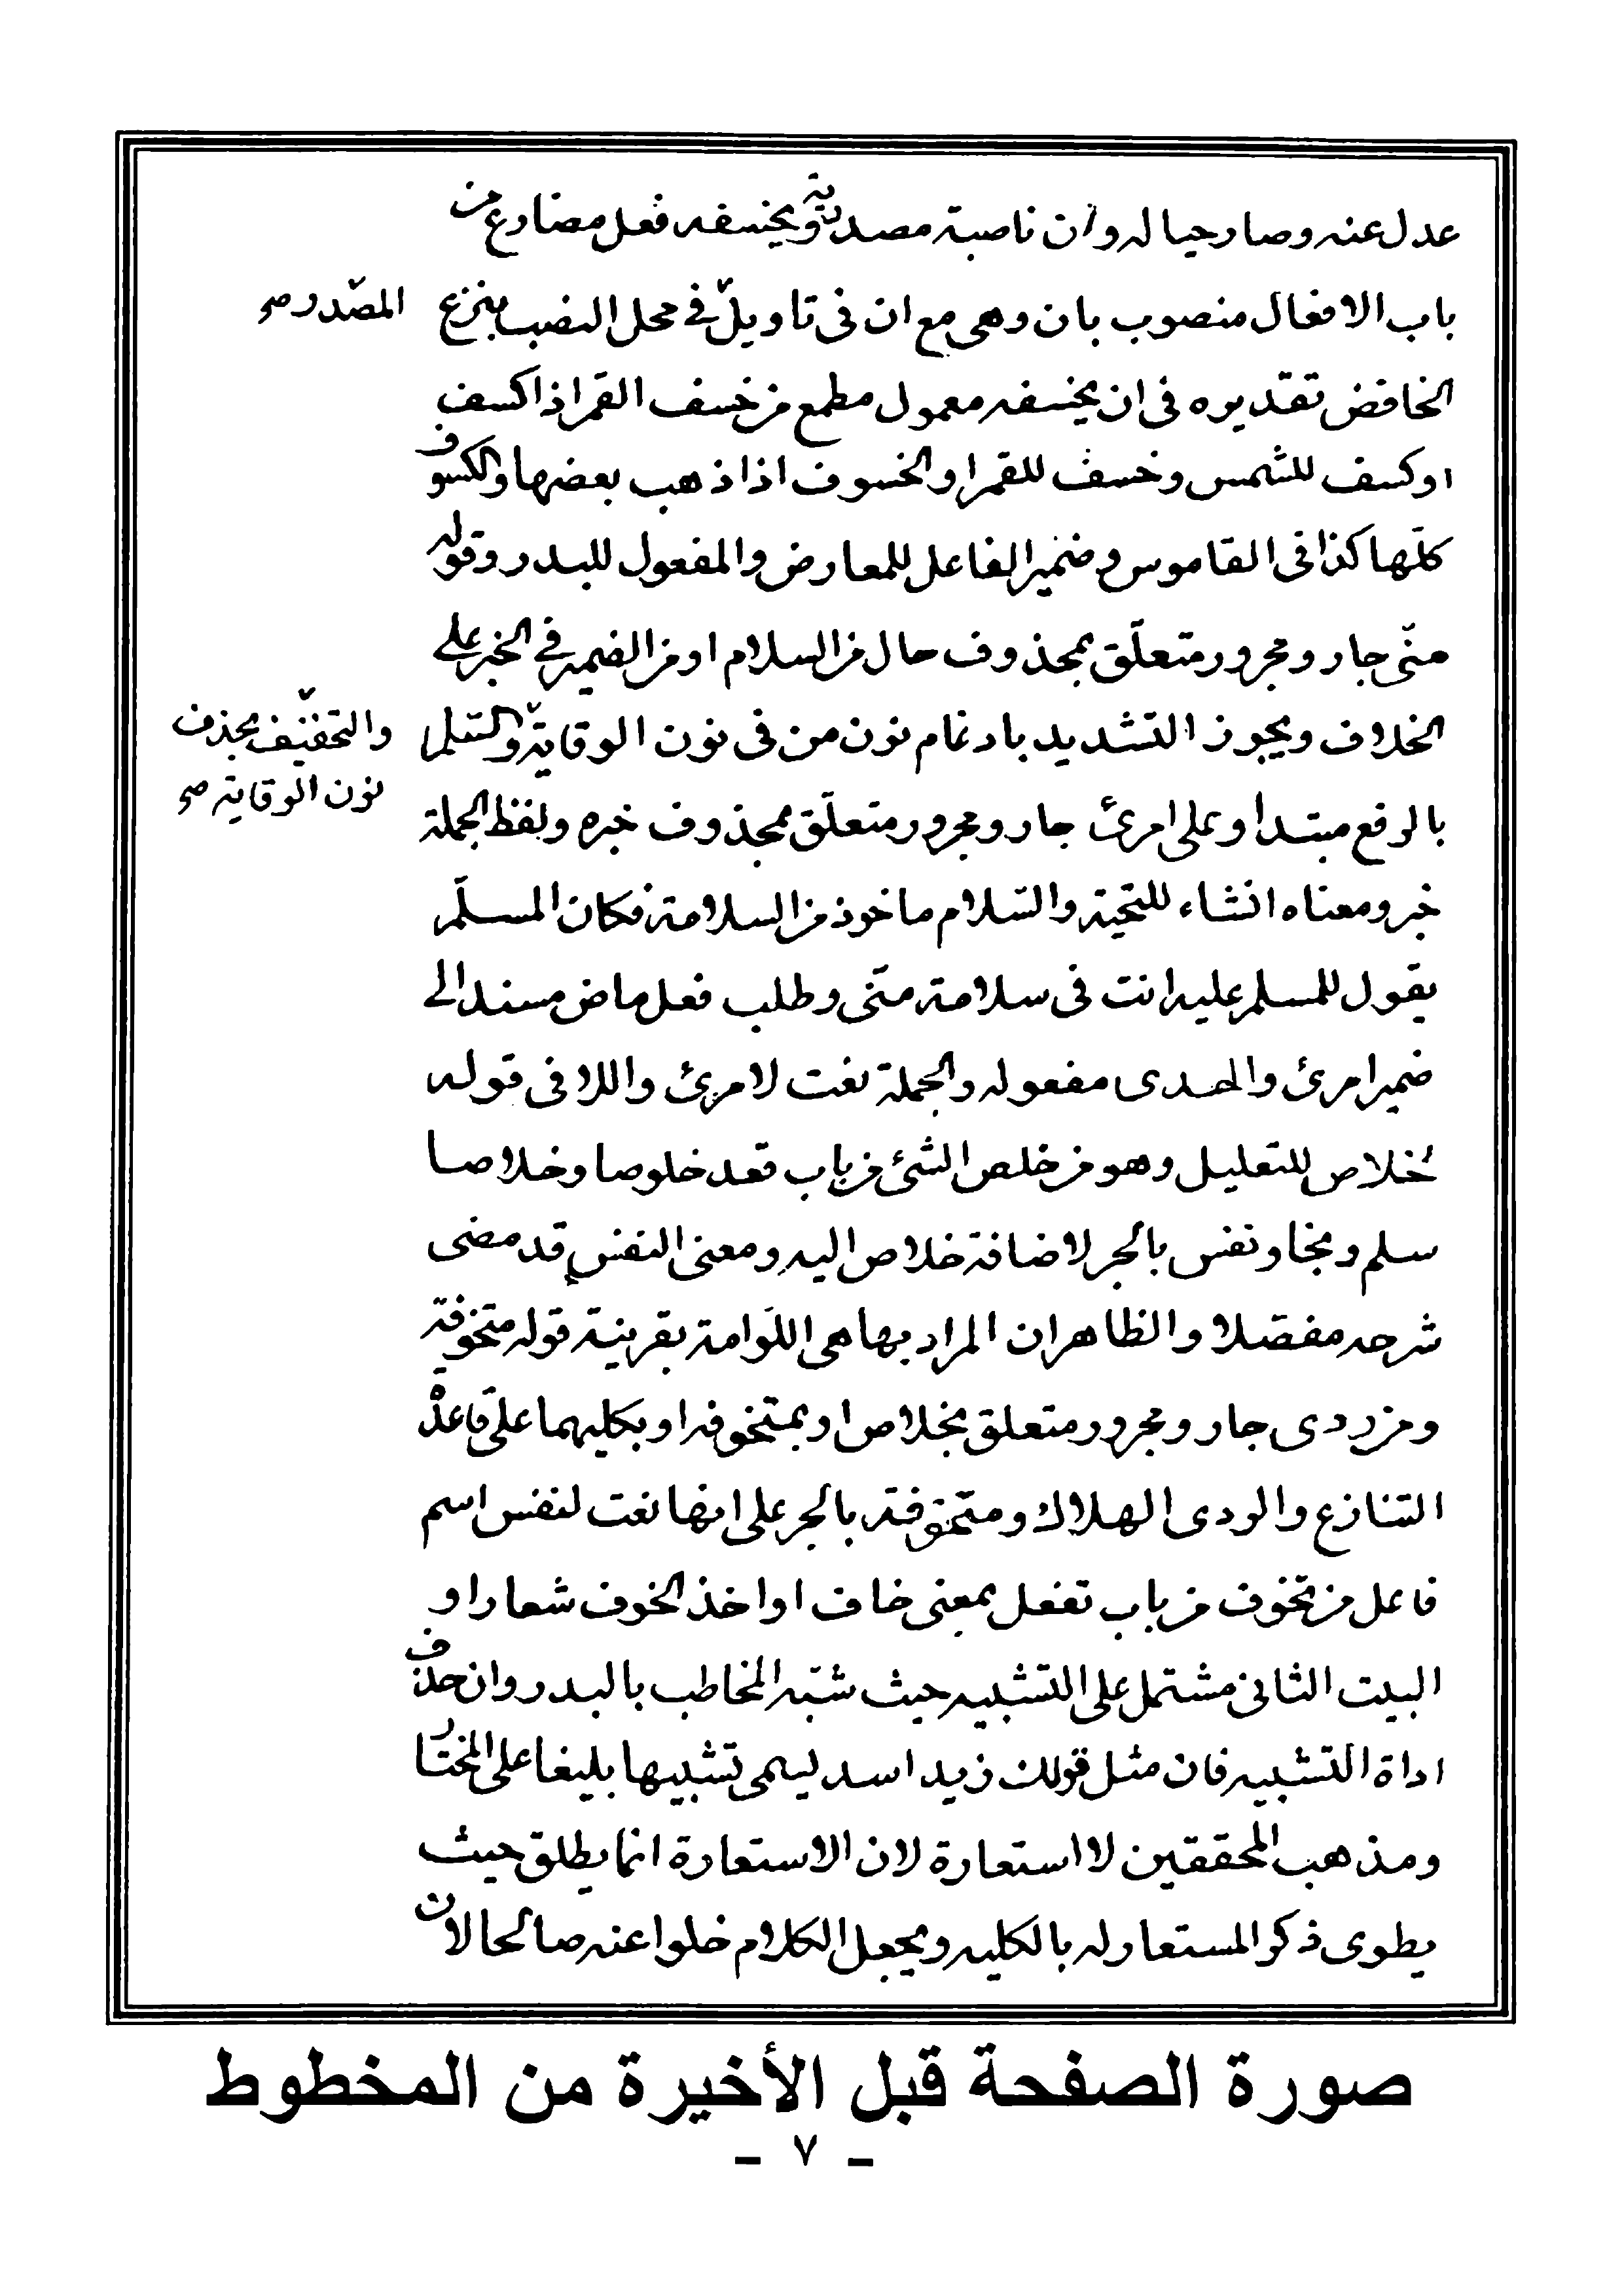 عدل عنه وصار حياله وان ناصبة مصدرية ويخسفه فعل مضارع من
باب الافعال منصوب بان وهى مع ان فى تاويل فى محل النصب بنزع
المصدر صح
الخافض تقديره فى ان يخسفه معمول مطمع من خسف القمر اذا كسف
او كسف للشمس وخسف للقمر او الخسوف اذا ذهب بعضها والكسوف
كلّها كذا فى القاموس وضمير الفاعل للمعارض والمفعول للبدر وقوله
منّى جار ومجرور متعلّق بمحذوف حال من السلام او من الضمير فى الخبر على
الخلاف ويجوز التشديد بادغام نون من فى نون الوقاية والسّلام
والتخفيف بحذف
نون الوقاية صح
بالرفع مبتدا وعلى امرئ جار ومجرور متعلّق بمحذوف خبره ولفظ الجملة
خبر ومعناه انشاء للتحية والسّلام ماخوذ من السلامة فكان المسلّم
يقول للمسلم عليه انت فى سلامة منّى وطلب فعل ماض مسند الى
ضمير امرئ والهدى مفعوله والجملة نعت لامرئ واللا فى قوله
لخلاص للتعليل وهو من خلص الشئ من باب قعد خلوصا وخلاصا
سلم ونجا ونفس بالجر لاضافة خلاص اليه ومعنى النفس قد مضى
شرحه مفصّلا والظاهر ان المراد بها هى اللوّامة بقرينة قوله متخوفة
ومن ردى جار ومجرور متعلق بخلاص او بمتخوفة او بكليهما على قاعدة
التنازع والردى الهلاك ومتخوّفة بالجر على انها نعت لنفس اسم
فاعل من تخوف من باب تفعل بمعنى خاف او اخذ الخوف شعارا و
البيت الثانى مشتمل على التشبيه حيث شبّه المخاطب بالبدر وان حذف
اداة التشبيه فان مثل قولك زيد اسد ليسمى تشبيها بليغا على المختار
ومذهب المحققين لا استعارة لان الاستعارة انما يطلق حيث
يطوى ذكر المستعار له بالكليه ويجعل الكلام خلوا عنه صالحا لان
صورة الصفحة قبل الأخيرة من المخطوط
- ٧ -